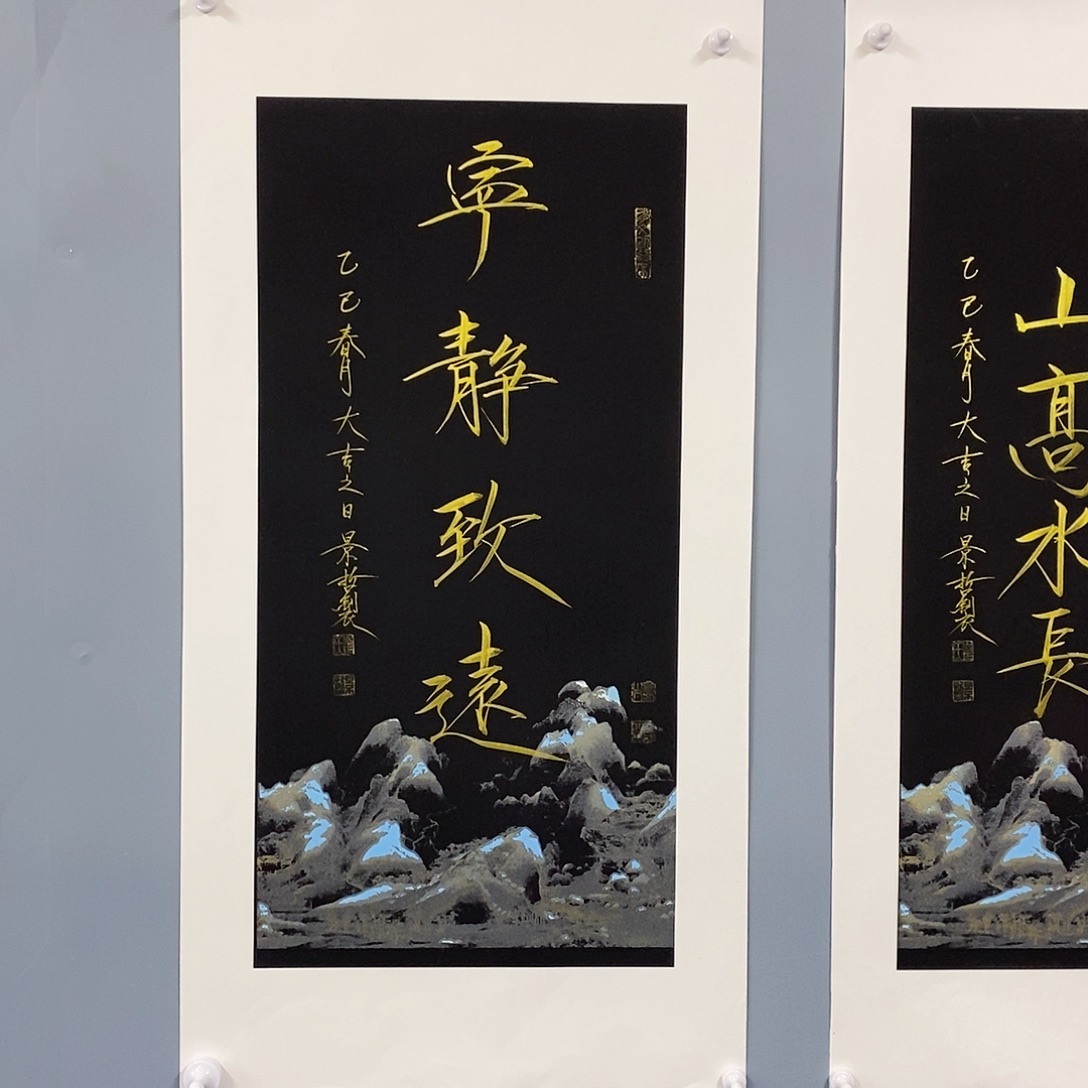 寧靜致遠
乙巳春月大吉之日景哲製
山高水長
乙巳春月大吉之日景哲製